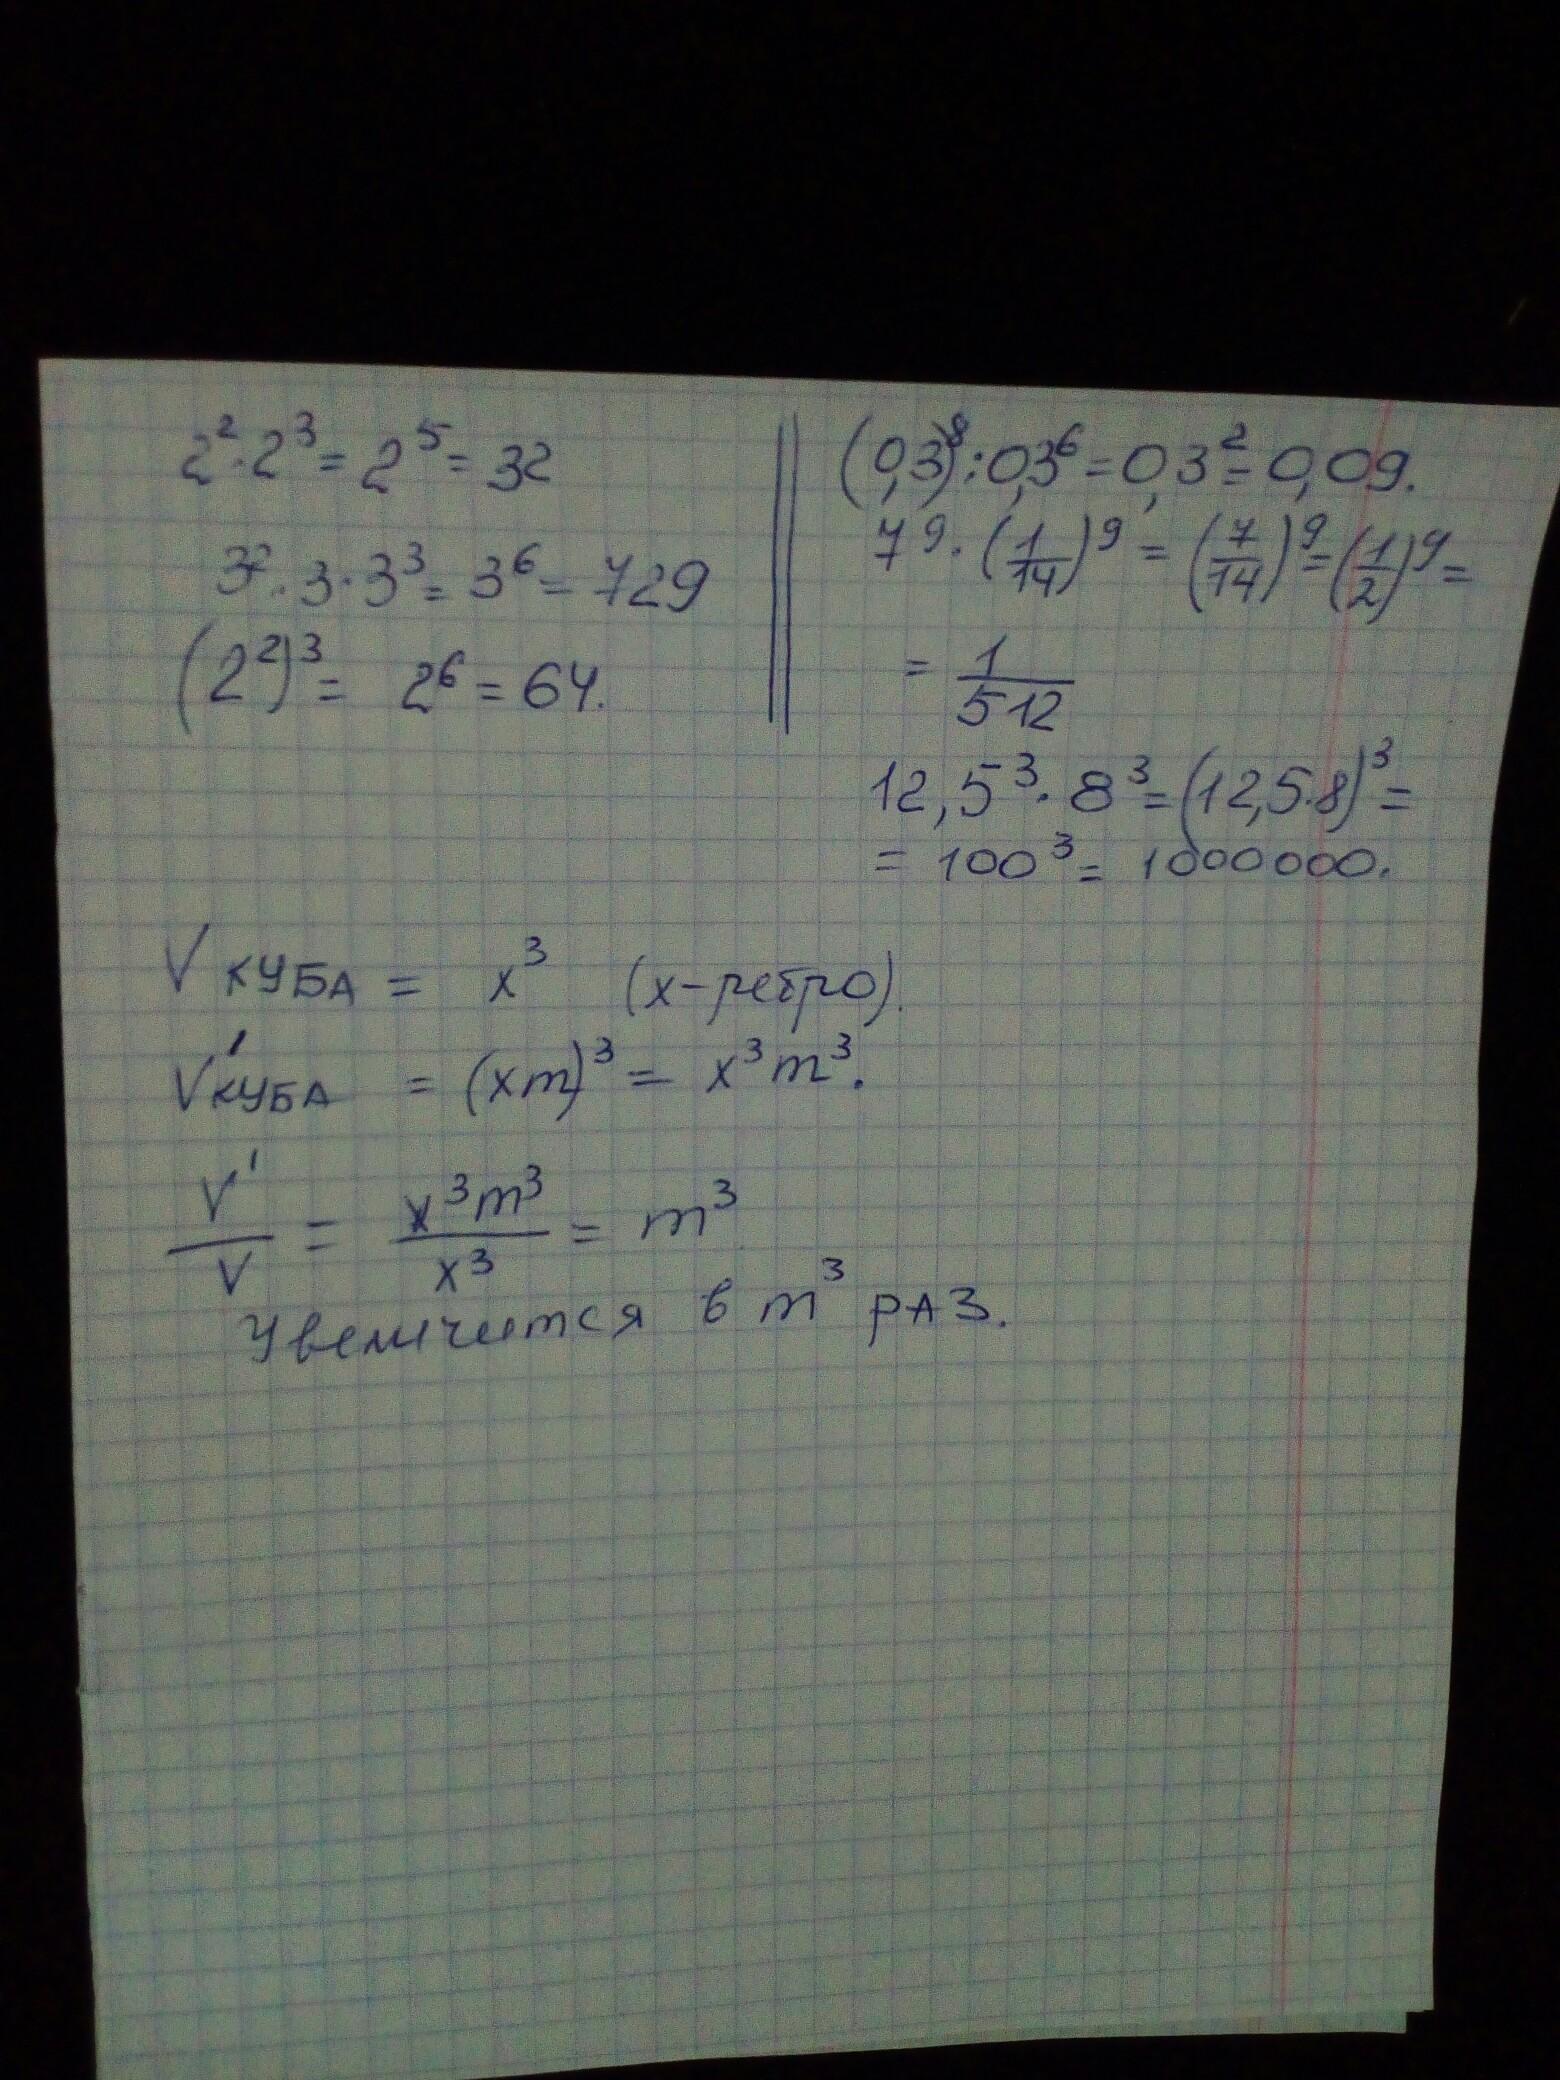 2² · 2³ = 2⁵ = 32
3² · 3 · 3³ = 3⁶ = 729
(2²)³ = 2⁶ = 64.
(0,3)⁸ : 0,3⁶ = 0,3² = 0,09.
7⁹ · (1/14)⁹ = (7/14)⁹ = (1/2)⁹ =
= 1/512
12,5³ · 8³ = (12,5·8)³ =
= 100³ = 1000000.
V КУБА = x³ (x-ребро).
V' КУБА = (xm)³ = x³m³.
V'/V = x³m³/x³ = m³
Увеличится в m³ раз.